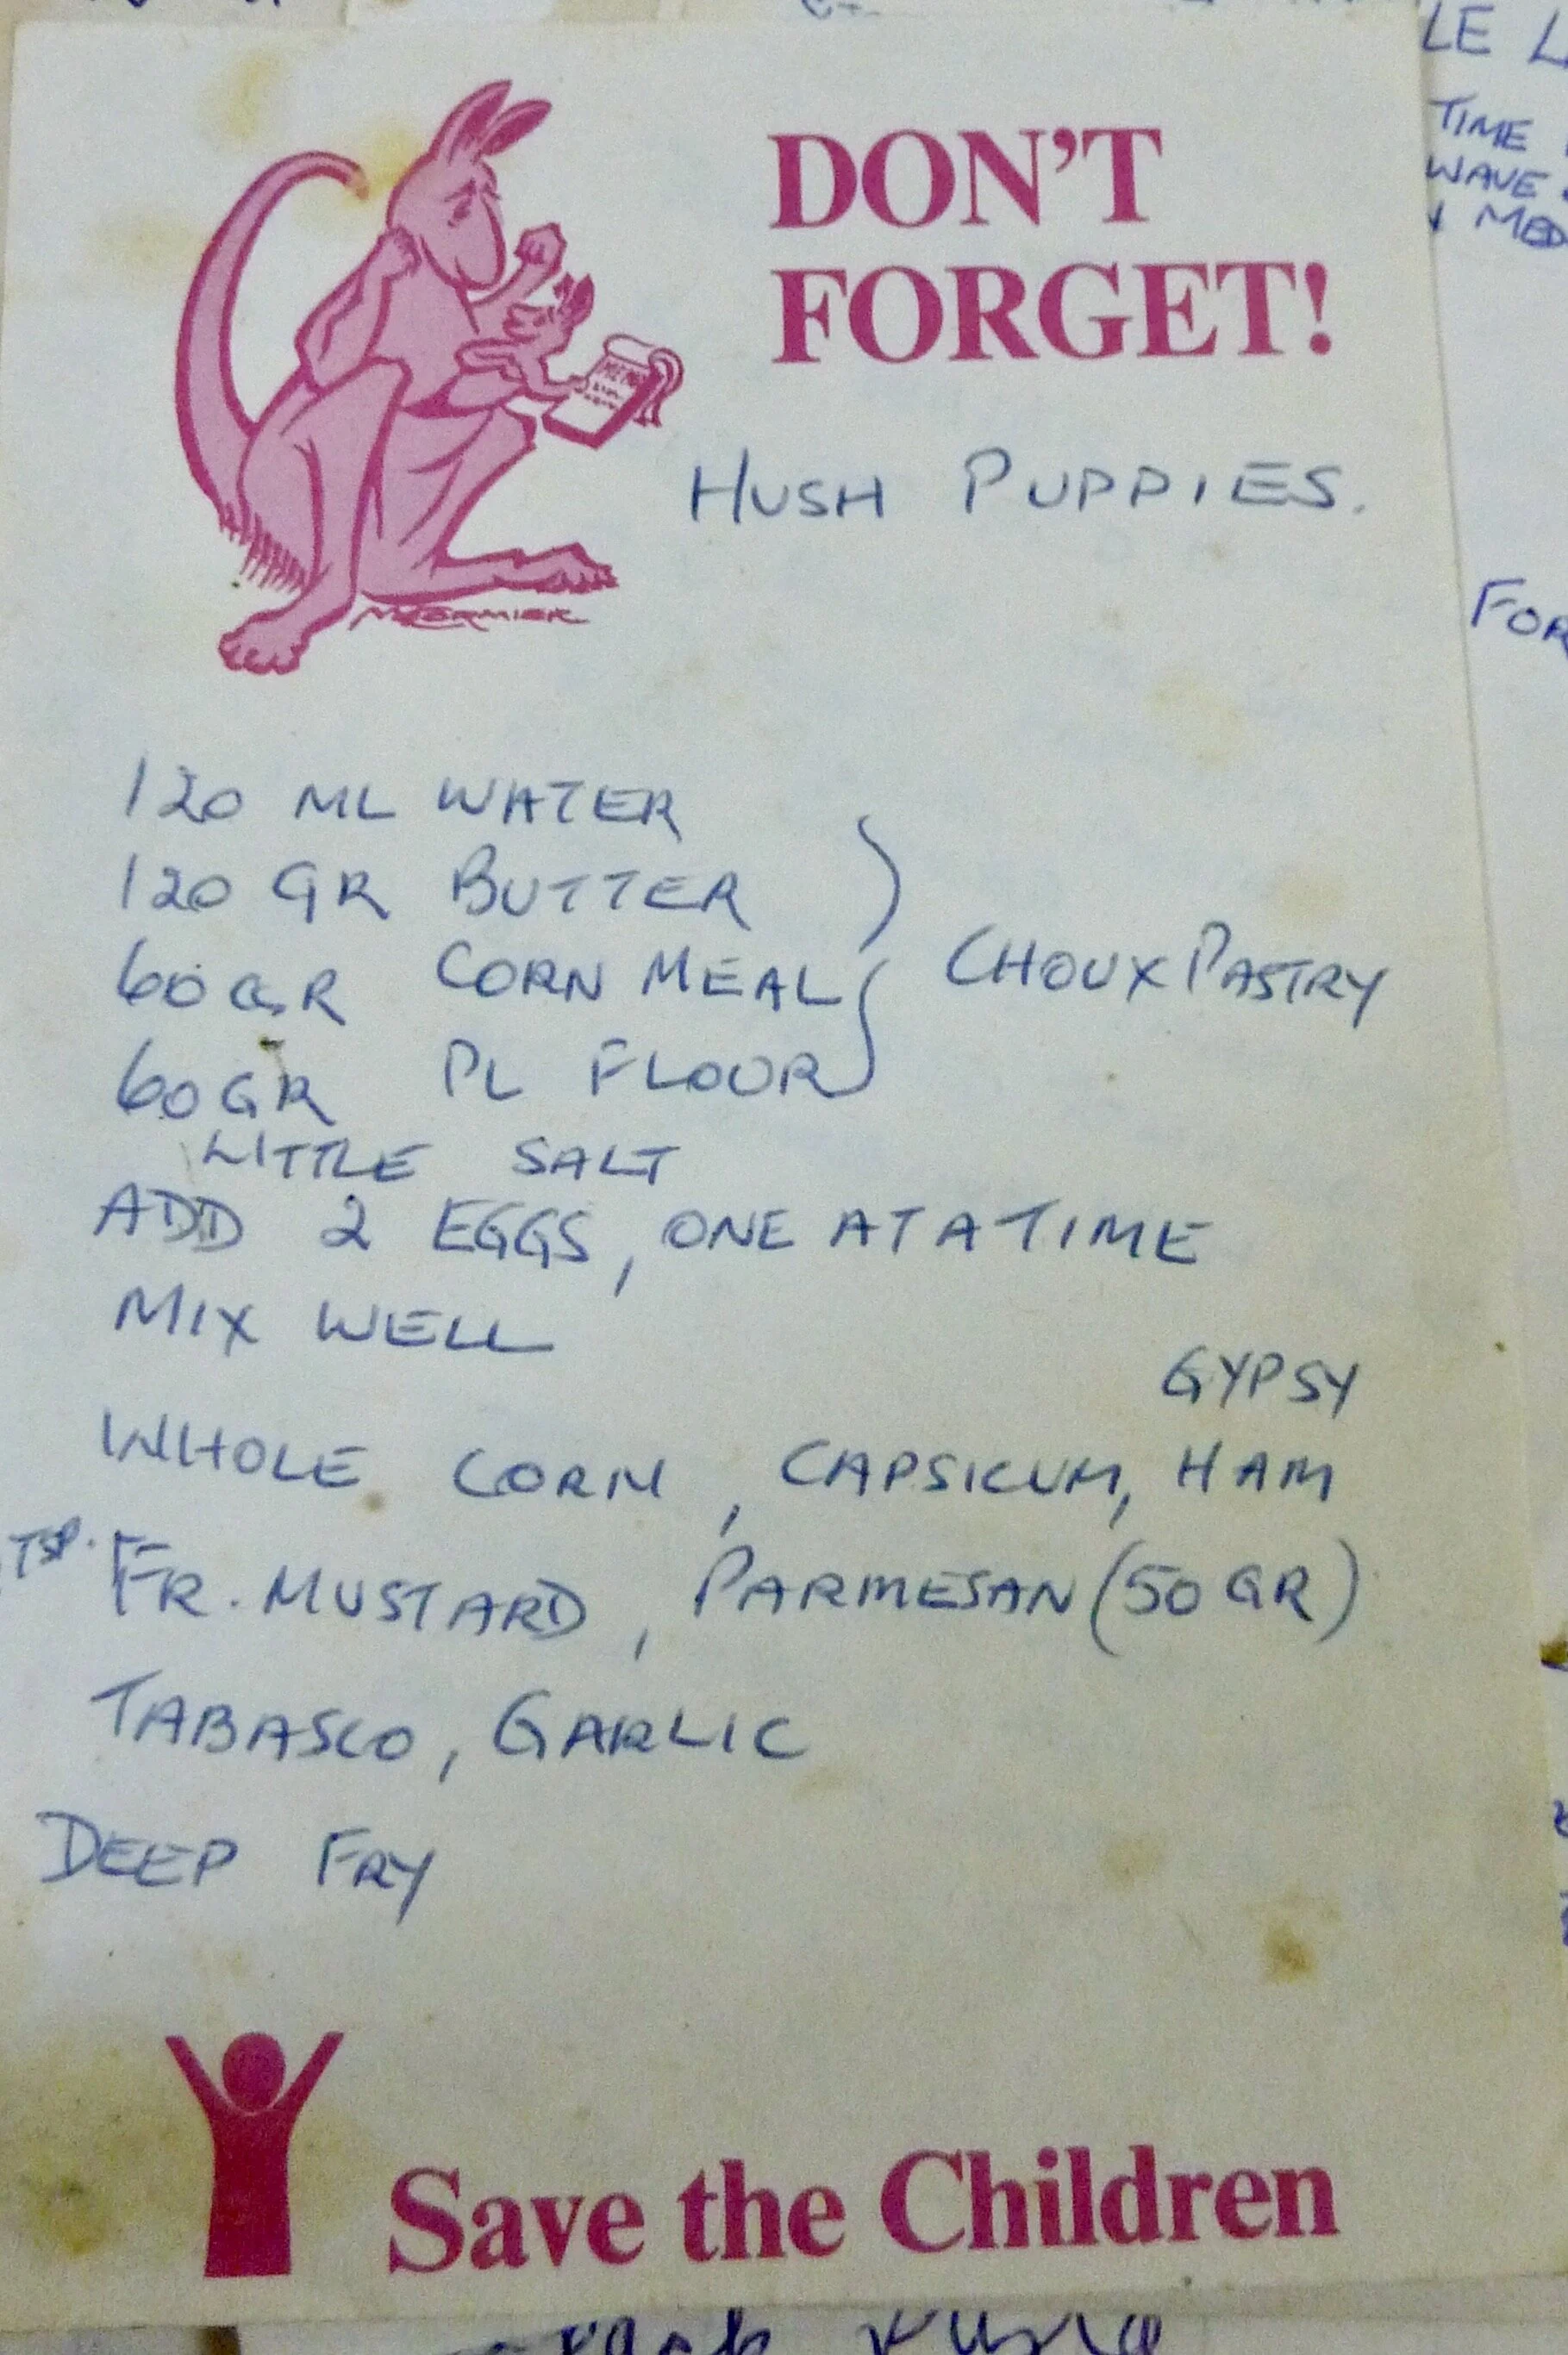 DON'T
FORGET!
HUSH PUPPIES.
120 ML WATER
120 GR BUTTER
60 GR CORN MEAL
CHOUX PASTRY
60 GR PL FLOUR
LITTLE SALT
ADD 2 EGGS, ONE AT A TIME
MIX WELL
GYPSY
WHOLE CORN, CAPSICUM, HAM
TSP. FR. MUSTARD, PARMESAN (50 GR)
TABASCO, GARLIC
DEEP FRY
Save the Children
TIME
WAVE
MED